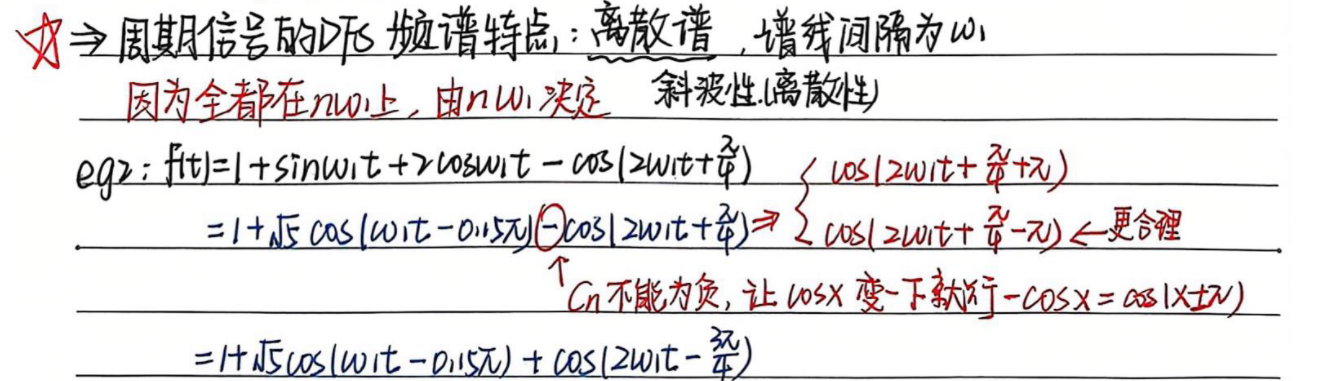 ☆⇒周期信号的DFS频谱特点:离散谱,谱线间隔为ω₁
因为全都在nω₁上,由nω₁决定 斜波性(离散性)
eg2: f(t)=1+sinω₁t+2cosω₁t-cos(2ω₁t+π/4) { cos(2ω₁t+π/4+π)
=1+√5 cos(ω₁t-0.15π)-cos(2ω₁t+π/4)⇒ cos(2ω₁t+π/4-π)←更合理
↑Cn不能为负,让cosx变一下就行-cosx=cos(x±π)
=1+√5cos(ω₁t-0.15π)+cos(2ω₁t-3π/4)